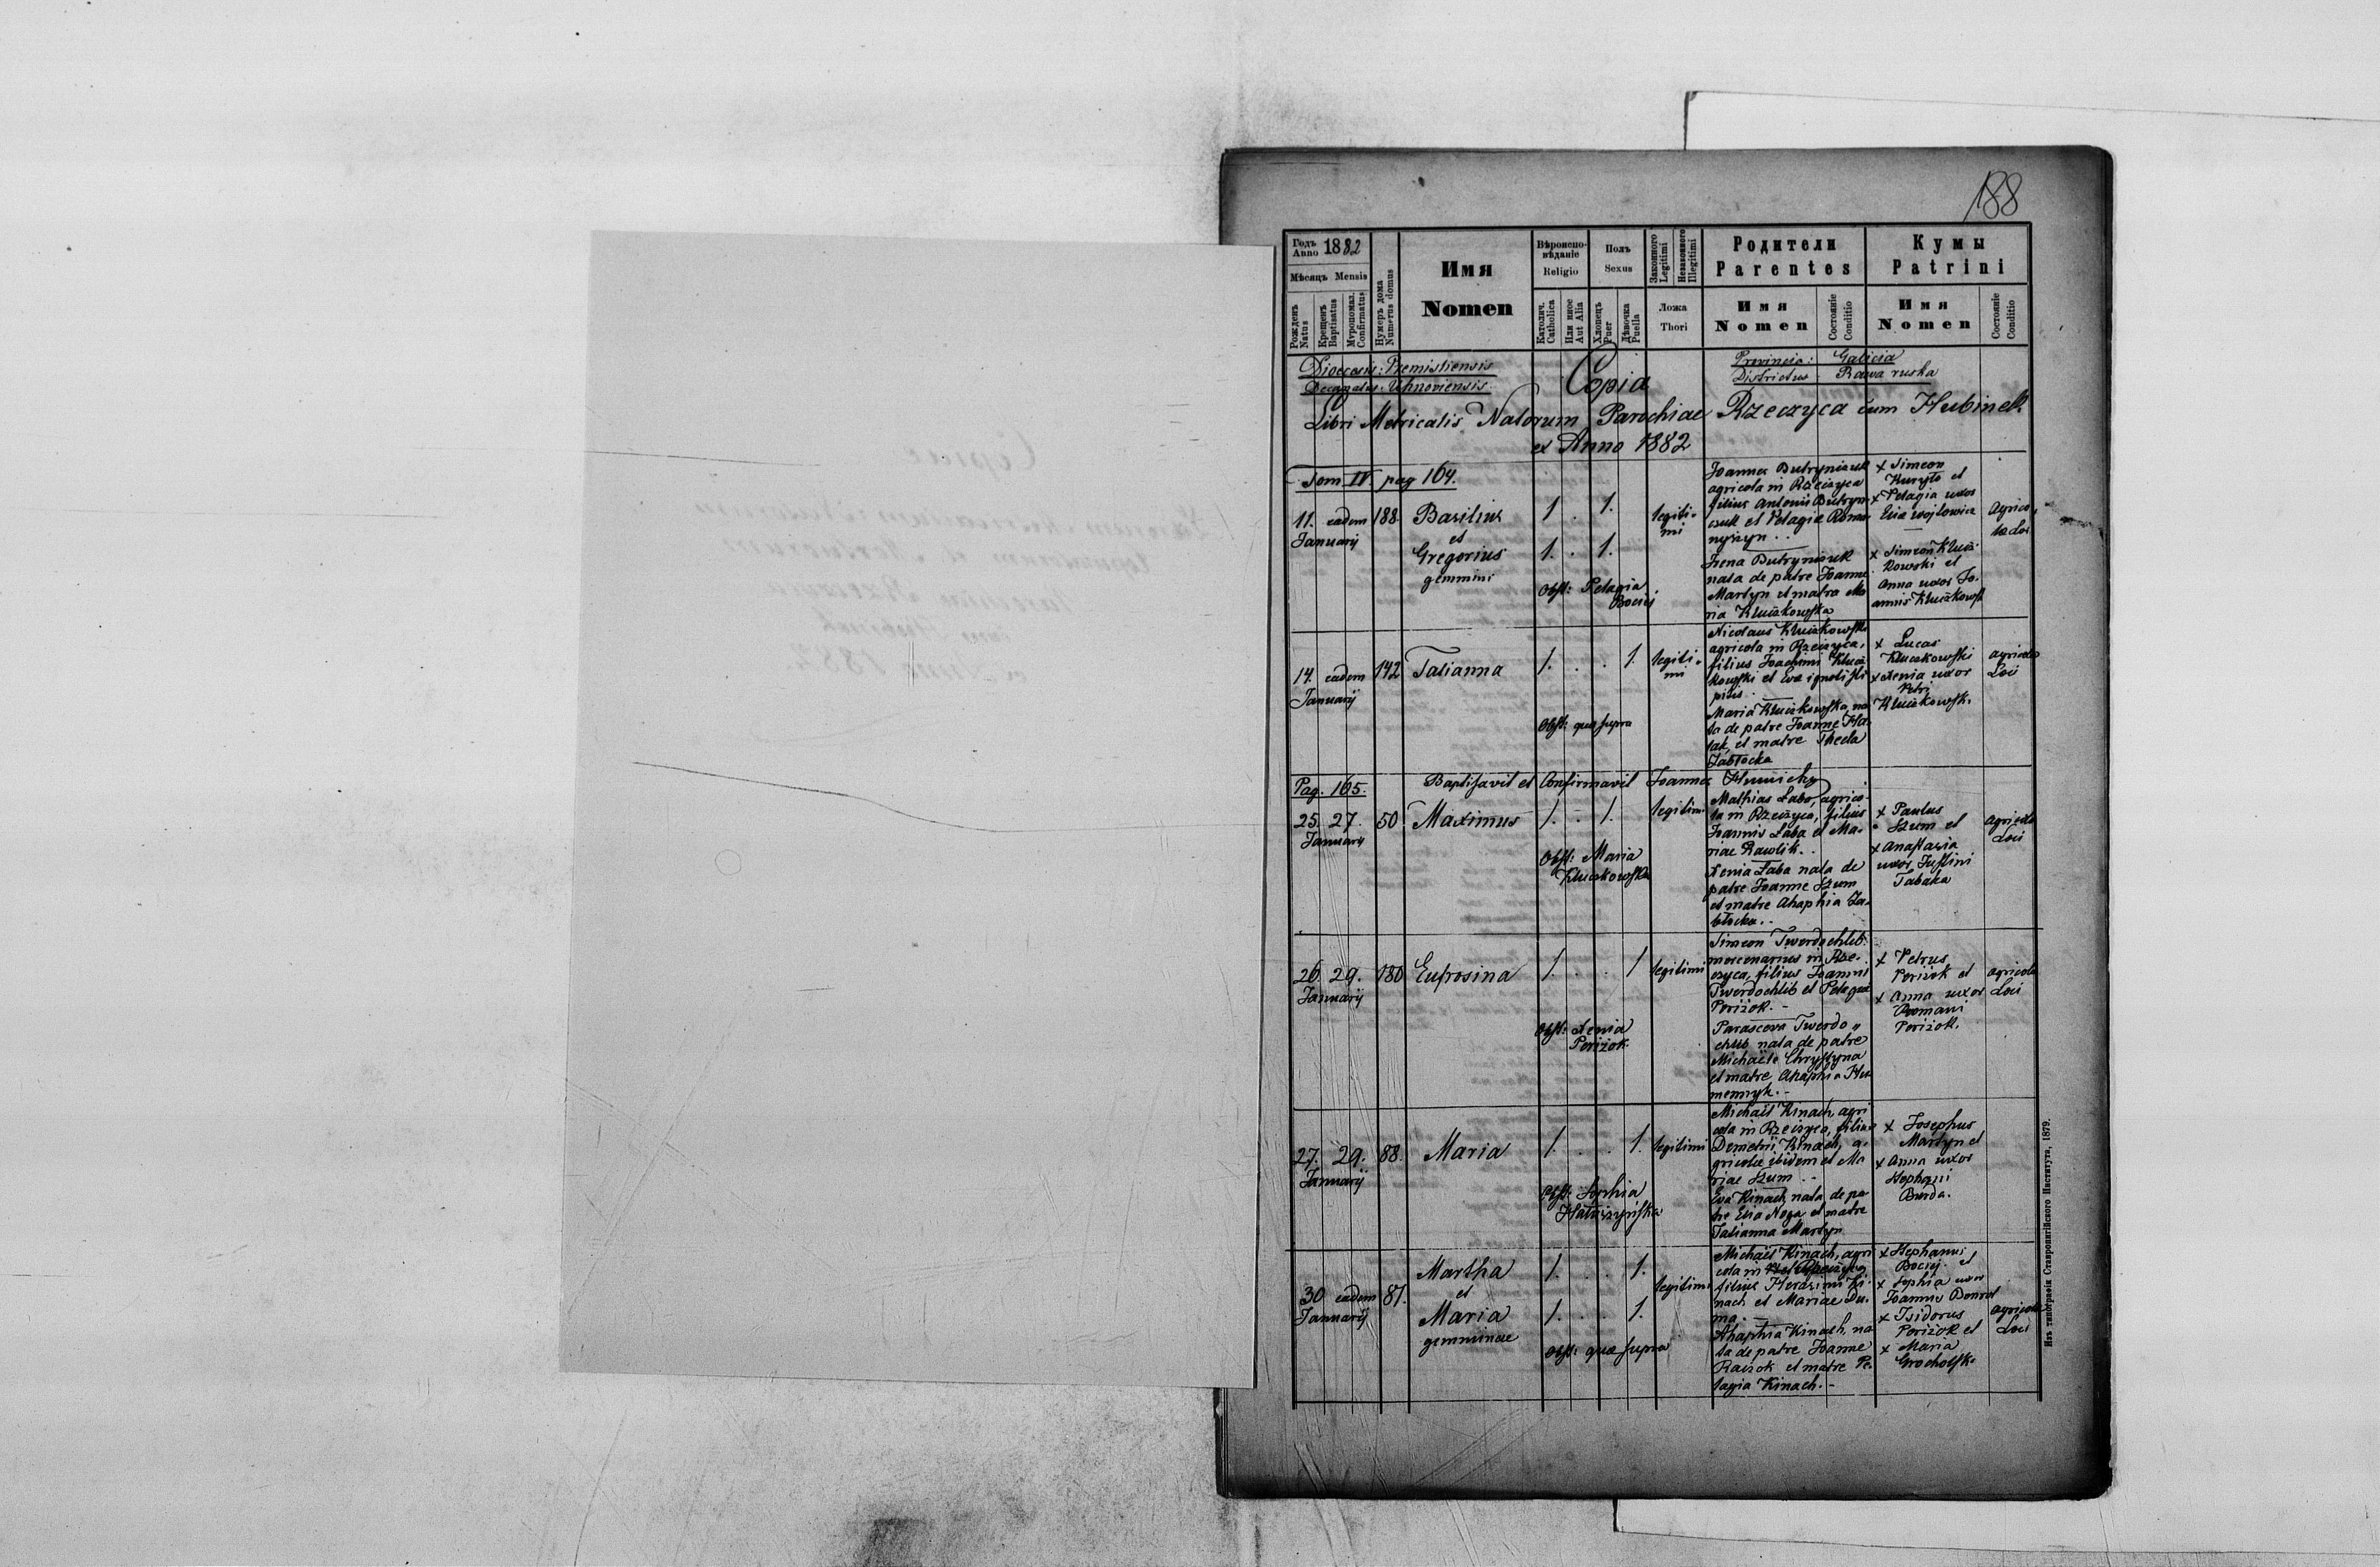 188
Годъ Anno 1882
Мѣсяцъ Mensis
Рожденъ Natus
Крещенъ Baptisatus
Мѵропомаз. Confirmatus
Нумеръ дома Numerus domus
Имя
Nomen
Вѣроиспо-
вѣданіе
Religio
Католич. Catholica
Или иное Aut Alia
Полъ
Sexus
Хлопецъ Puer
Дѣвочка Puella
Законного Legitimi
Незаконного Illegitimi
Ложа
Thori
Родители
Parentes
Имя
Nomen
Состояніе Conditio
Кумы
Patrini
Имя
Nomen
Состояніе Conditio
Dioecesis: Premisliensis
Decanatus: Uhnoviensis
Copia
Provincia: Galicia
Districtus Rawa ruska
Libri Metricalis Natorum Parochiae Rzeczyca cum Hubinek
ex Anno 1882
Tom. IV. pag 164.
11. eadem
Januarij
188
Basilius
et
Gregorius
gemmini
1 . 1.
1. . 1.
Obst: Pelagia
Bociej
legiti-
mi
Joannes Butryniuk
agricola in Rzeczyca
filius Antonii Butryn-
czuk et Pelagia Roma-
nyszyn . .
Irena Butryniuk
nata de patre Joanne
Martyn et matre Ma
ria Kluczkowska
x Simeon
Kuryło et
x Pelagia uxor
Eliae Wojtowicz
x Simeon Klucz-
kowski et
Anna uxor Jo-
annis Kluczkowsk
Agrico-
la Loci
14. eadem
Januarij
142
Tatianna
1. . . 1.
Obst: quae supra
legiti-
mi
Nicolaus Kluczkowski
agricola in Rzeczyca,
filius Joachimi Klucz
kowski et Eva ignoti sti
pitis.
Maria Kluczkowska, na
ta de patre Joanne Ha-
lak, et matre Thecla
Jabłocka
x Lucas
Kluczkowski
x Xenia uxor
Petri
Kluczkowsk.
agricola
Loci
Pag. 165.
Baptisavit et Confirmavit Joannes Humicky
25. 27.
Januarij
50
Maximus
1. . 1.
Obst: Maria
Kluczkowska
legitimi
Mathias Łaba, agrico-
la in Rzeczyca, filius
Joannis Łaba et Ma-
riae Pawlik. .
Xenia Łaba nata de
patre Joanne Szum
et matre Ahaphia Za-
błocka. .
x Paulus
Szum et
x Anastasia
uxor Justini
Tabaka
agricola
Loci
26. 29.
Januarij
180
Eufrosina
1. . . 1
Obst: Xenia
Poriżok.
legitimi
Simeon Twerdochlib
mercenarius in Rze-
czyca, filius Joannis
Twerdochlib et Pelagia
Poriżok. -
Parasceva Twerdo-
chlib nata de patre
Michaële Chrystyna
et matre Ahaphia Hu
meniuk. -
x Petrus
Poriżok et
x Anna uxor
Romani
Poriżok.
agricola
Loci
27. 29.
Januarij
88.
Maria
1. . . 1.
Obst: Sophia
legitimi
Michaël Kinach, agri
cola in Rzeczyca, filius
Demetrii Kinach, a-
gricolae ibidem et Ma
riae Szum . .
Eva Kinach, nata de pa-
tre Elia Noga et matre
Tatianna Martyn
x Josephus
Martyn et
x Anna uxor
Stephani
Burda.
30 eadem
Januarij
87.
Martha
et
Maria
gemminae
1. . . 1.
1. . . 1.
Obst: quae supra
legitimi
Michaël Kinach, agri
cola in Rzeczyca
filius Herasimi Ki-
nach et Mariae Du-
ma. -
Ahaphia Kinach, na
ta de patre Joanne
Raizok et matre Pe-
lagia Kinach. -
x Stephanus
Bociej. et
x Sophia uxor
Joannis
x Isidorus
Poriżok et
x Maria
Grocholsk.
agricola
Loci
Изъ типографіи Ставропигійского Института, 1879.